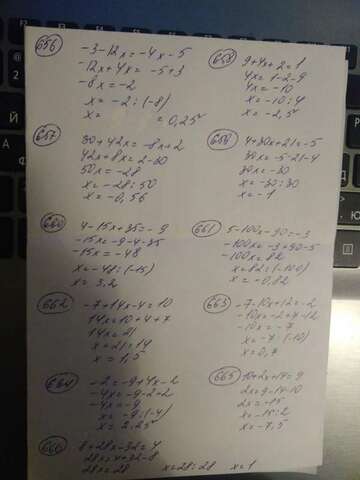 656
-3-12x=-4x-5
-12x+4x=-5+3
-8x=-2
x=-2:(-8)
x= =0,25
657
30+42x=-8x+2
42x+8x=2-30
50x=-28
x=-28:50
x=-0,56
660
4-15x+35=-9
-15x=-9-4-35
-15x=-48
x=-48:(-15)
x=3,2
662
-7+14x-4=10
14x=10+4+7
14x=21
x=21:14
x=1,5
664
-2=-9+4x-2
-4x=-9-2+2
-4x=-9
x=-9:(-4)
x=2,25
666
8+28x-32=4
28x=4+32-8
28x=28 x=28:28 x=1
658
9+4x+2=1
4x=1-2-9
4x=-10
x=-10:4
x=-2,5
659
4+30x+21=-5
30x=-5-21-4
30x=-30
x=-30:30
x=-1
661
5-100x-90=-3
-100x=-3+90-5
-100x=82
x=82:(-100)
x=-0,82
663
-7-10x+12=-2
-10x=-2+7-12
-10x=-7
x=-7:(-10)
x=0,7
665
10+2x+14=9
2x=9-14-10
2x=-15
x=-15:2
x=-7,5